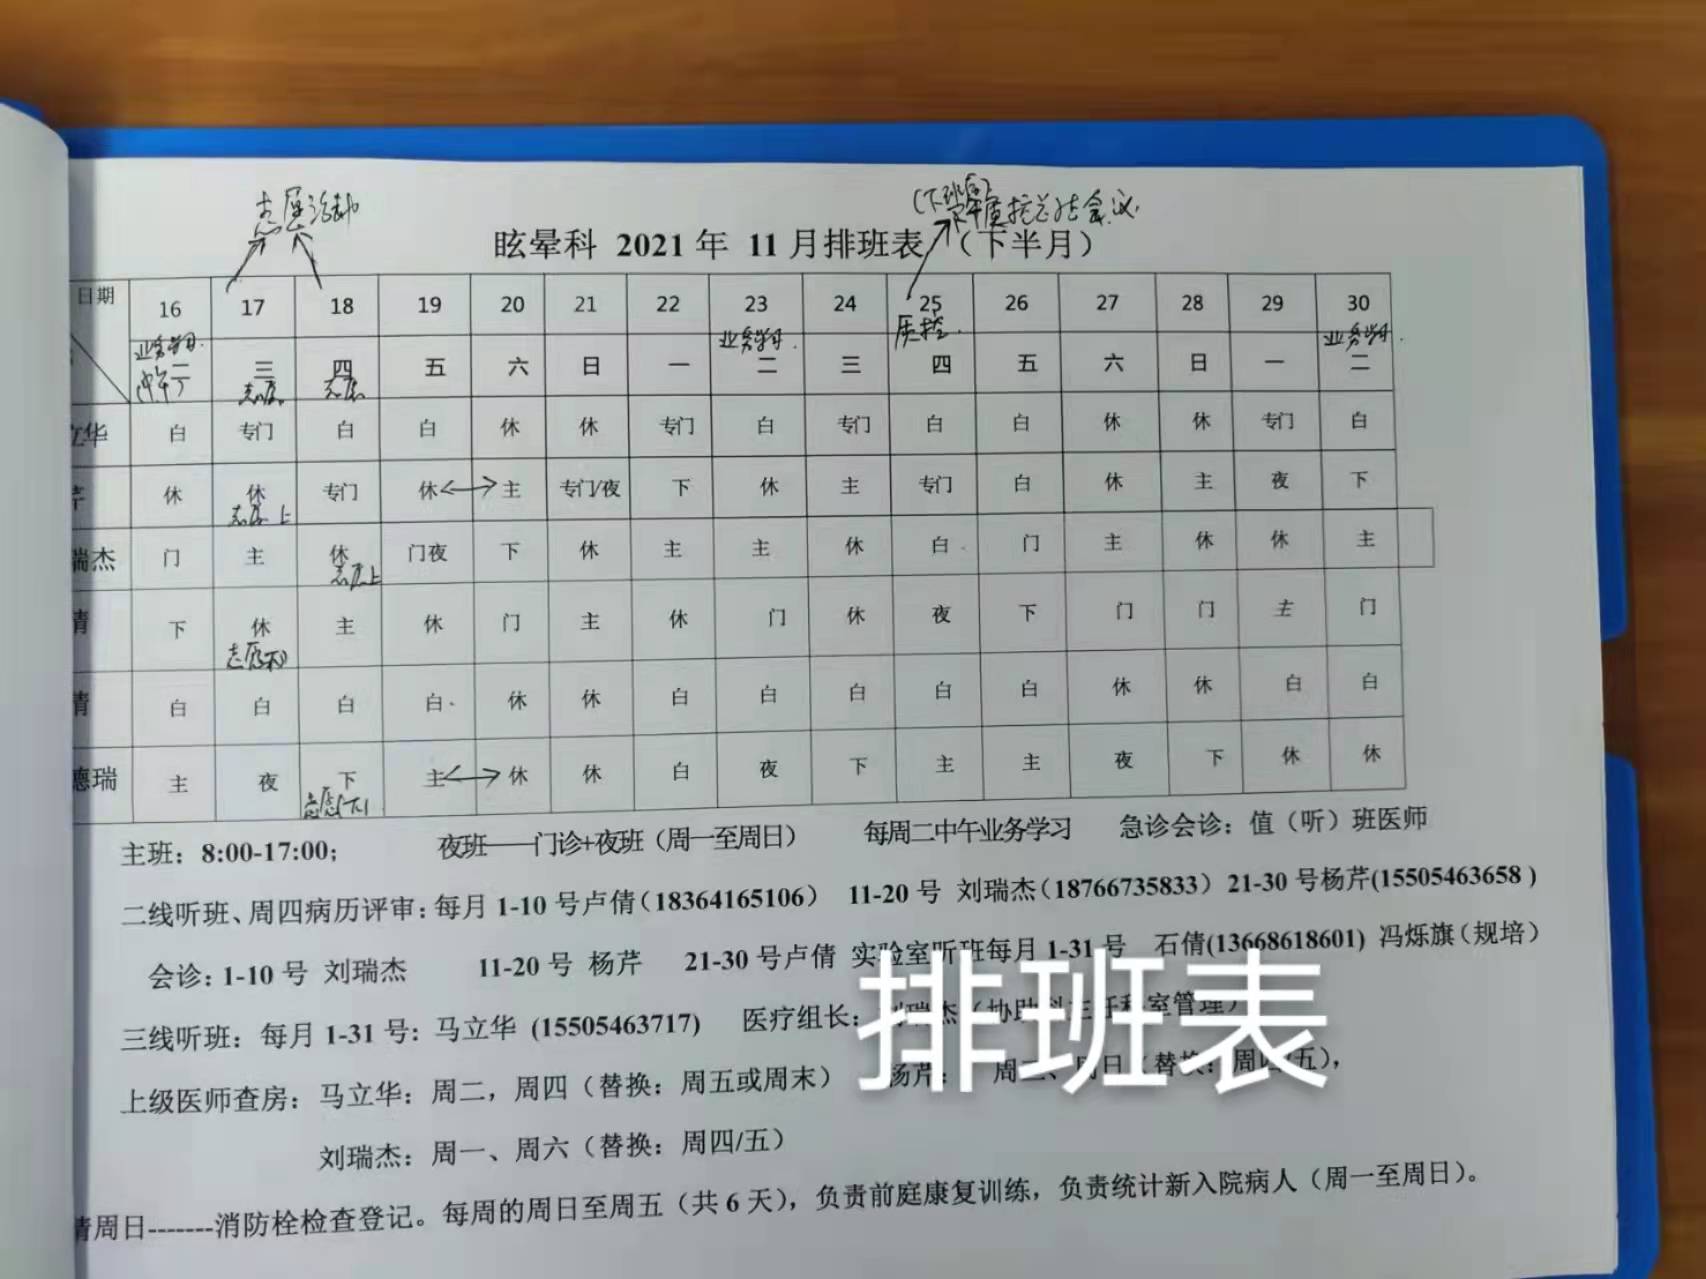 志愿活动
(下班后)
质控总结会议
眩晕科 2021 年 11 月排班表 （下半月）
日期 16 17 18 19 20 21 22 23 24 25 26 27 28 29 30
业务学习 业务学习 质控 业务学习
二 三 四 五 六 日 一 二 三 四 五 六 日 一 二
(中午) 志愿 志愿
立华 白 专门 白 白 休 休 专门 白 专门 白 白 休 休 专门 白
芹 休 休 专门 休 主 专门/夜 下 休 主 专门 白 休 主 夜 下
志愿上
瑞杰 门 主 休 门夜 下 休 主 主 休 白 门 主 休 休 主
志愿上
倩 下 休 主 休 门 主 休 门 休 夜 下 门 门 主 门
志愿(下)
倩 白 白 白 白 休 休 白 白 白 白 白 休 休 白 白
惠瑞 主 夜 下 主 休 休 白 夜 下 主 主 夜 下 休 休
志愿(下)
主班：8:00-17:00; 夜班——门诊+夜班（周一至周日） 每周二中午业务学习 急诊会诊：值（听）班医师
二线听班、周四病历评审：每月 1-10 号卢倩（18364165106） 11-20 号 刘瑞杰（18766735833）21-30 号杨芹(15505463658 )
会诊：1-10 号 刘瑞杰 11-20 号 杨芹 21-30 号卢倩 实验室听班每月 1-31 号 石倩(13668618601) 冯烁旗（规培）
三线听班：每月 1-31 号: 马立华 (15505463717) 医疗组长：刘瑞杰（协助科主任科室管理）
上级医师查房：马立华：周二，周四（替换：周五或周末） 杨芹： 周三、周日（替换：周四/五），
排班表
刘瑞杰：周一、周六（替换：周四/五）
倩周日-------消防栓检查登记。每周的周日至周五（共 6 天），负责前庭康复训练，负责统计新入院病人（周一至周日）。